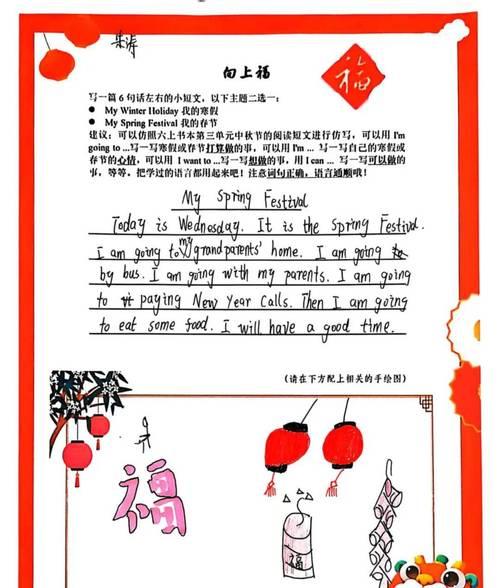 朱涛
向上福
福
写一篇 6 句话左右的小短文，以下主题二选一：
● My Winter Holiday 我的寒假
● My Spring Festival 我的春节
建议：可以仿照六上书本第三单元中秋节的阅读短文进行仿写，可以用 I'm
going to ...写一写寒假或春节打算做的事，可以用 I'm ... 写一写自己的寒假或
春节的心情，可以用 I want to ...写一写想做的事，用 I can ... 写一写可以做的
事，等等，把学过的语言都用起来吧！注意词句正确，语言通顺哦！
My Spring Festival
Today is Wednesday. It is the Spring Festival.
I am going to my grandparents' home. I am going
by bus. I am going with my parents. I am going
to paying New Year Calls. Then I am going
to eat some food. I will have a good time.
（请在下方配上相关的手绘图）
福
福